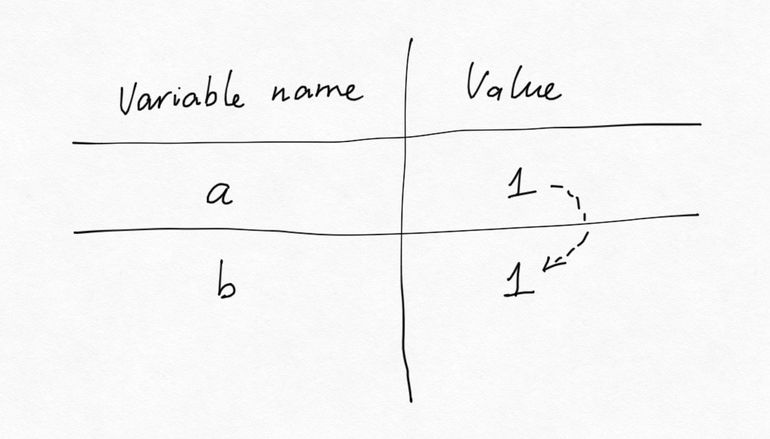 Variable name Value
a 1
b 1